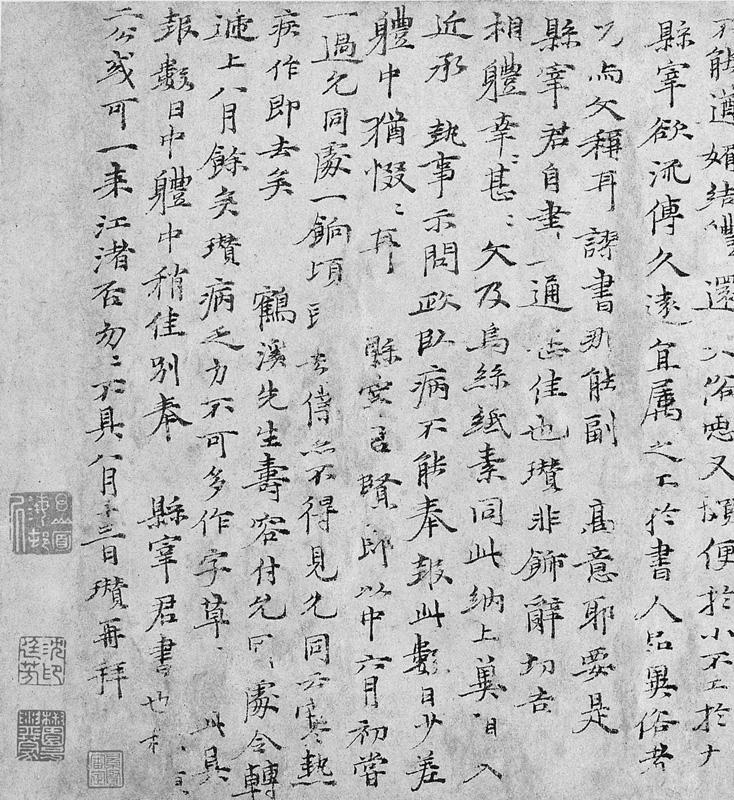 不能遒婿結體還入俗惡又頗便於小不工於大
縣宰欲流傳久遠宜属之工於書人品異俗者
乃為文稱耳謬書那能副高意耶要是
縣宰君自書一通甚佳也瓚非飾辭切告
相體幸〻甚〻文及烏絲紙素同此納上冀目入
近承執事示問政臥病不能奉報此數日少差
體中猶惙〻耳縣宰君賢郎以中六月初嘗
一過允同處一餉頃去僕亦不得見允同云寒熱
疾作即去矣鶴溪先生壽容付允同處令轉
遞上八月餘矣瓚病乏力不可多作字草〻此具
報數日中體中稍佳别奉縣宰君書也
二公或可一来江渚否勿〻不具八月十三日瓚再拜